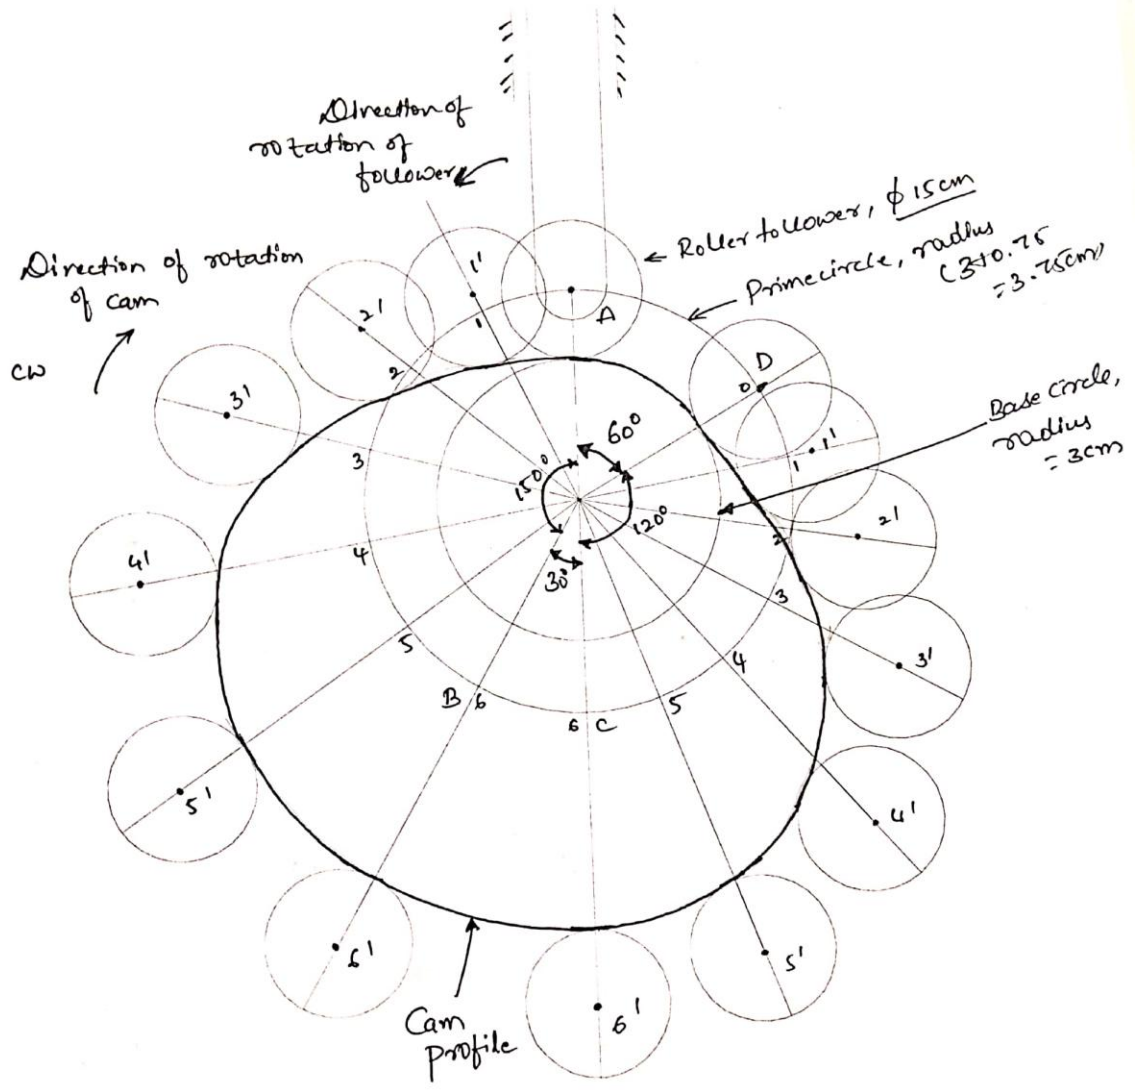 Direction of
rotation of
follower
Direction of rotation
of cam
CW
Roller follower, ϕ 15cm
Primecircle, radius
(3+0.75
=3.75cm)
Base circle,
radius
=3cm
1'
1
A
2'
2
D
0
3'
3
1
1'
60°
150°
120°
30°
4'
4
2
2'
3
3'
5
4
B 6
6 C
5
5'
4'
6'
6'
5'
Cam
profile